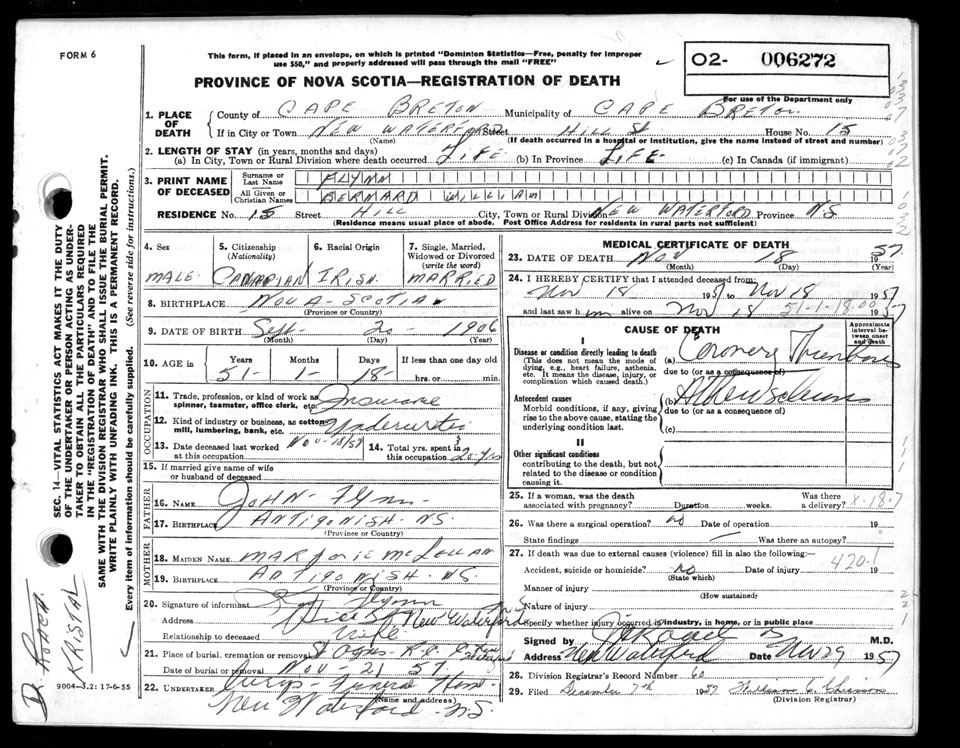 FORM 6
This form, if placed in an envelope, on which is printed "Dominion Statistics—Free, penalty for improper
use $50," and properly addressed will pass through the mail "FREE"
PROVINCE OF NOVA SCOTIA—REGISTRATION OF DEATH
02- 006272
For use of the Department only
1. PLACE OF DEATH County of CAPE BRETON Municipality of CAPE BRETON
If in City or Town NEW WATERFORD Street HILL St House No. 15
(Name) (If death occurred in a hospital or institution, give the name instead of street and number)
2. LENGTH OF STAY (in years, months and days)
(a) In City, Town or Rural Division where death occurred LIFE (b) In Province LIFE (c) In Canada (if immigrant)
3. PRINT NAME OF DECEASED Surname or Last Name FLYNN
All Given or Christian Names BERNARD WILLIAM
RESIDENCE No. 15 Street HILL City, Town or Rural Division NEW WATERFORD Province NS
(Residence means usual place of abode. Post Office Address for residents in rural parts not sufficient)
4. Sex MALE
5. Citizenship (Nationality) CANADIAN
6. Racial Origin IRISH
7. Single, Married, Widowed or Divorced (write the word) MARRIED
8. BIRTHPLACE NOVA-SCOTIA
(Province or Country)
9. DATE OF BIRTH Sept 20 1906
(Month) (Day) (Year)
10. AGE IN Years Months Days If less than one day old
51 - 1 - 18 - hrs. or min.
OCCUPATION
11. Trade, profession, or kind of work as spinner, teamster, office clerk, etc. Insurance
12. Kind of industry or business, as cotton mill, lumbering, bank, etc. Underwriter
13. Date deceased last worked at this occupation Nov-18/57 14. Total yrs. spent in this occupation 20 yrs
15. If married give name of wife or husband of deceased
FATHER
16. NAME JOHN-FLYNN
17. BIRTHPLACE ANTIGONISH. NS.
(Province or Country)
MOTHER
18. MAIDEN NAME MARJORIE
19. BIRTHPLACE ANTIGONISH. NS.
(Province or Country)
20. Signature of informant Flynn
Address Hill St New Waterford
Relationship to deceased Wife
21. Place of burial, cremation or removal St Agnes R.C. C. New Waterford
Date of burial or removal Nov-21 57.
22. UNDERTAKER Funeral Home
(Name and address)
New Waterford N.S.
MEDICAL CERTIFICATE OF DEATH
23. DATE OF DEATH Nov 18 1957
(Month) (Day) (Year)
24. I HEREBY CERTIFY that I attended deceased from:
Nov 18 1957 to Nov 18 1957
and last saw him alive on Nov 18 1957
51-1-18.00
CAUSE OF DEATH
Approximate interval between onset and death
I
Disease or condition directly leading to death
(This does not mean the mode of dying, e.g., heart failure, asthenia, etc. It means the disease, injury, or complication which caused death.)
(a) Coronary Thrombosis
due to (or as a consequence)
Antecedent causes
Morbid conditions, if any, giving rise to the above cause, stating the underlying condition last.
(b)
due to (or as a consequence)
(c)
II
Other significant conditions
contributing to the death, but not related to the disease or condition causing it.
25. If a woman, was the death associated with pregnancy? Duration weeks. Was there a delivery?
X-18-7
26. Was there a surgical operation? no Date of operation 19
State findings Was there an autopsy?
27. If death was due to external causes (violence) fill in also the following:—
Accident, suicide or homicide? no Date of injury 19
(State which)
420.1
Manner of injury
(How sustained)
Nature of injury
Specify whether injury occurred in industry, in home, or in public place
Signed by M.D.
Address New Waterford Date Nov 29 1957
28. Division Registrar's Record Number 60
29. Filed December 7th 1957
(Division Registrar)
SEC. 14—VITAL STATISTICS ACT MAKES IT THE DUTY
OF THE UNDERTAKER OR PERSON ACTING AS UNDER-
TAKER TO OBTAIN ALL THE PARTICULARS REQUIRED
IN THE "REGISTRATION OF DEATH" AND TO FILE THE
SAME WITH THE DIVISION REGISTRAR WHO SHALL ISSUE THE BURIAL PERMIT.
WRITE PLAINLY WITH UNFADING INK. THIS IS A PERMANENT RECORD.
Every item of information should be carefully supplied. (See reverse side for instructions.)
D. ROACH.
KRISTAL
9004—3.2: 17-6-55